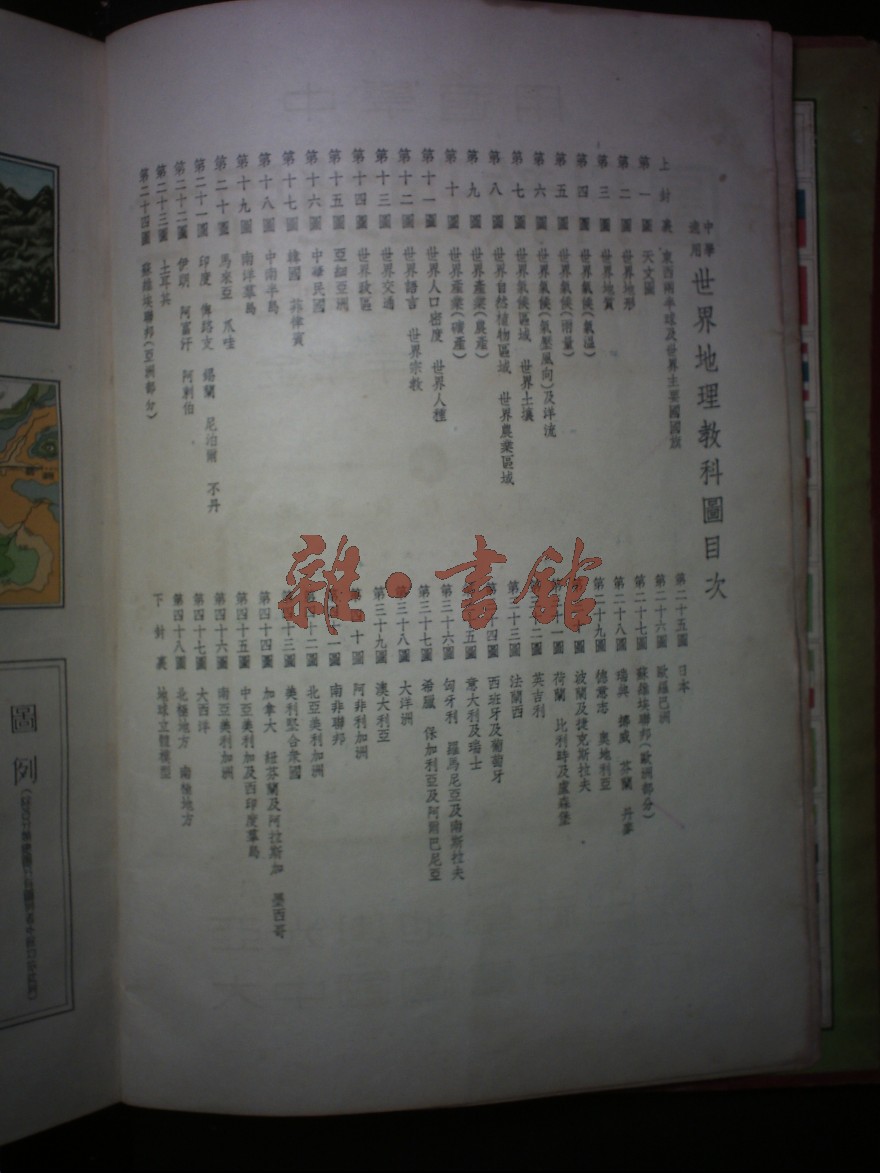 中學適用 世界地理教科圖目次
上封裏 東西兩半球及世界主要國國旗
第一圖 天文圖
第二圖 世界地形
第三圖 世界地質
第四圖 世界氣候(氣溫)
第五圖 世界氣候(雨量)
第六圖 世界氣候(氣壓風向)及洋流
第七圖 世界氣候區域 世界土壤
第八圖 世界自然植物區域 世界農業區域
第九圖 世界產業(農產)
第十圖 世界產業(礦產)
第十一圖 世界人口密度 世界人種
第十二圖 世界語言 世界宗教
第十三圖 世界交通
第十四圖 世界政區
第十五圖 亞細亞洲
第十六圖 中華民國
第十七圖 韓國 菲律賓
第十八圖 中南半島
第十九圖 南洋羣島
第二十圖 馬來亞 爪哇
第二十一圖 印度 俾路支 錫蘭 尼泊爾 不丹
第二十二圖 伊朗 阿富汗 阿剌伯
第二十三圖 土耳其
第二十四圖 蘇維埃聯邦(亞洲部分)
第二十五圖 日本
第二十六圖 歐羅巴洲
第二十七圖 蘇維埃聯邦(歐洲部分)
第二十八圖 瑞典 挪威 芬蘭 丹麥
第二十九圖 德意志 奧地利亞
第三十圖 波蘭及捷克斯拉夫
十一圖 荷蘭 比利時及盧森堡
三十二圖 英吉利
二十三圖 法蘭西
十四圖 西班牙及葡萄牙
五圖 意大利及瑞士
第三十六圖 匈牙利 羅馬尼亞及南斯拉夫
第三十七圖 希臘 保加利亞及阿爾巴尼亞
第三十八圖 大洋洲
第三十九圖 澳大利亞
第四十圖 阿非利加洲
一圖 南非聯邦
十二圖 北亞美利加洲
十三圖 美利堅合衆國
第四十四圖 加拿大 紐芬蘭及阿拉斯加 墨西哥
第四十五圖 中亞美利加及西印度羣島
第四十六圖 南亞美利加洲
第四十七圖 大西洋
第四十八圖 北極地方 南極地方
下封裏 地球立體模型
雜·書館
圖例